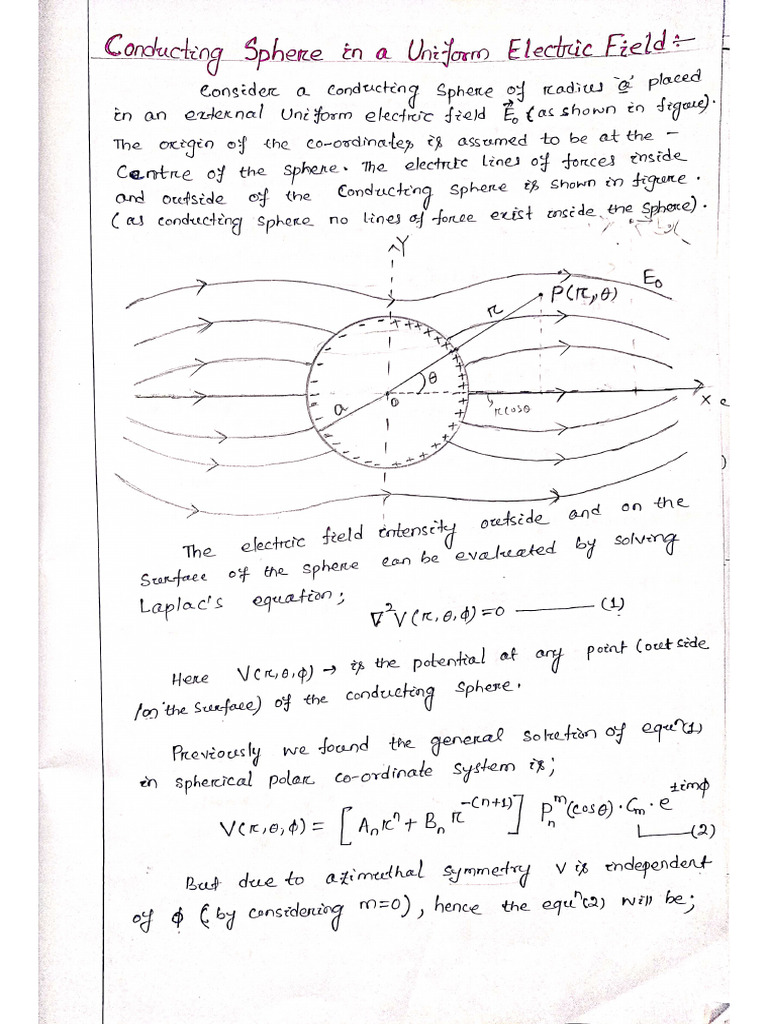 Conducting Sphere in a Uniform Electric Field :-
Consider a conducting sphere of radius 'a' placed
in an external Uniform electric field E⃗₀ (as shown in figure).
The origin of the co-ordinates is assumed to be at the -
Centre of the sphere. The electric lines of forces inside
and outside of the Conducting sphere is shown in figure.
(as conducting sphere no lines of force exist inside the sphere).
Y
E₀
P(r, θ)
r
θ
a
0
r cosθ
X
The electric field intensity outside and on the
Surface of the sphere can be evaluated by solving
Laplac's equation;
∇²V(r, θ, ϕ) = 0 ——— (1)
Here V(r, θ, ϕ) → is the potential at any point (out side
/on the surface) of the conducting sphere.
Previously we found the general solution of equⁿ(1)
in spherical polar co-ordinate system is;
V(r, θ, ϕ) = [Aₙrⁿ + Bₙ r^-(n+1)] Pₙᵐ(cosθ) · Cₘ · e^±imϕ
——(2)
But due to azimuthal symmetry V is independent
of ϕ (by considering m=0), hence the equⁿ(2) will be;